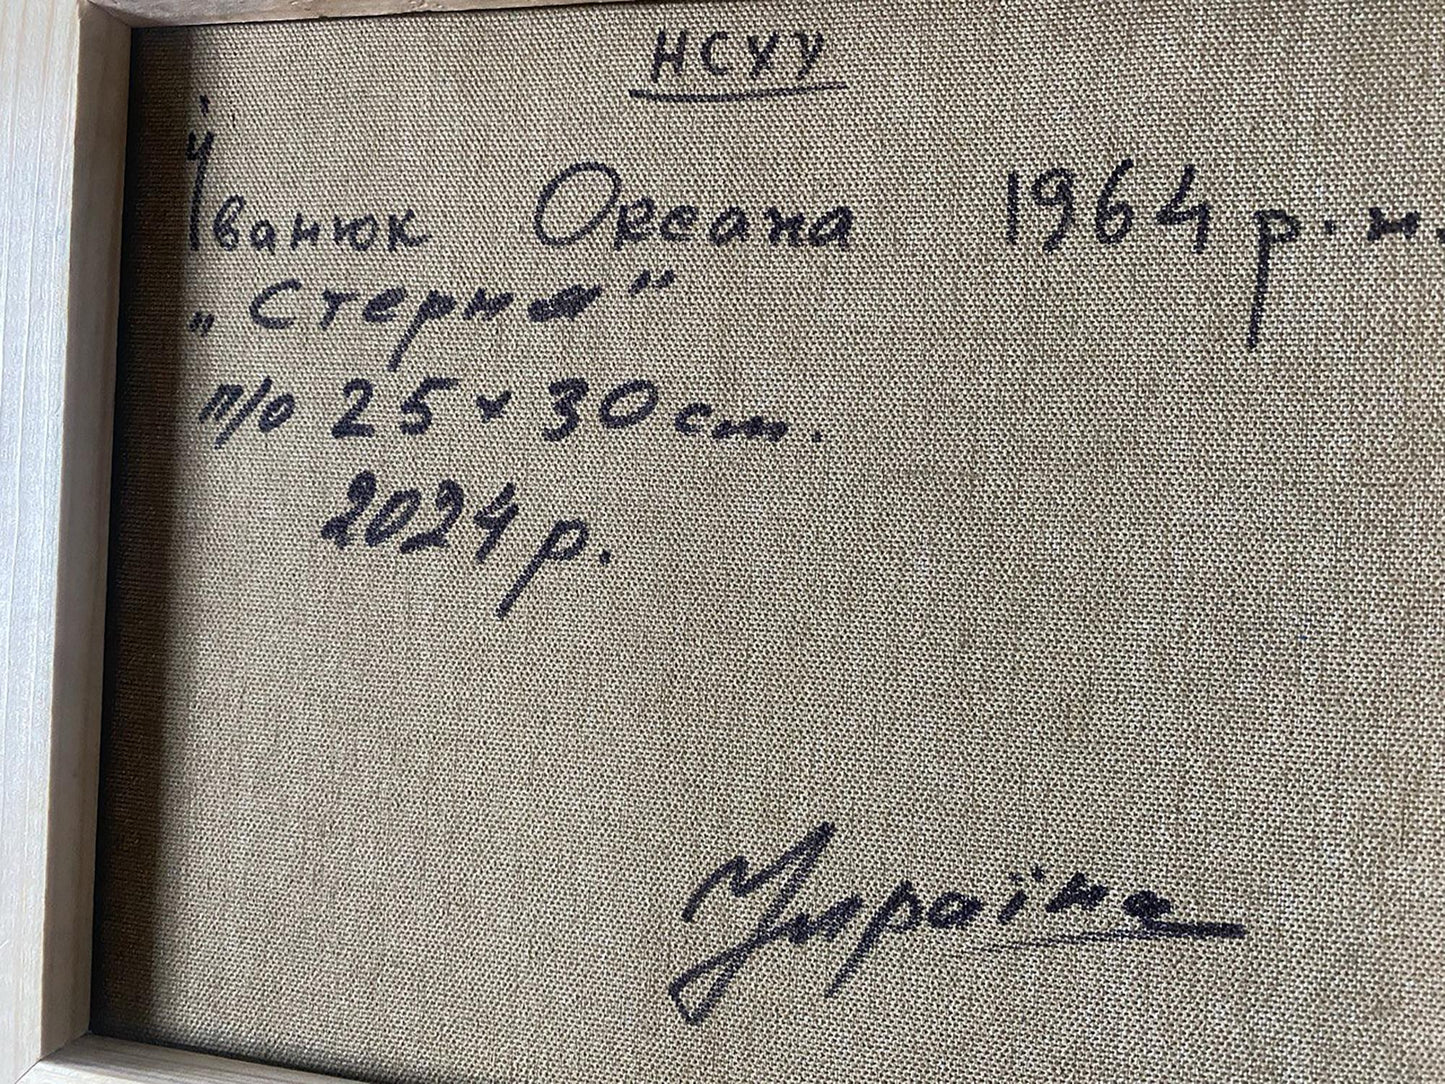 НСХУ
Іванюк Оксана 1964 р.н.
„Стерня"
п/о 25 × 30 см.
2024 р.
Україна